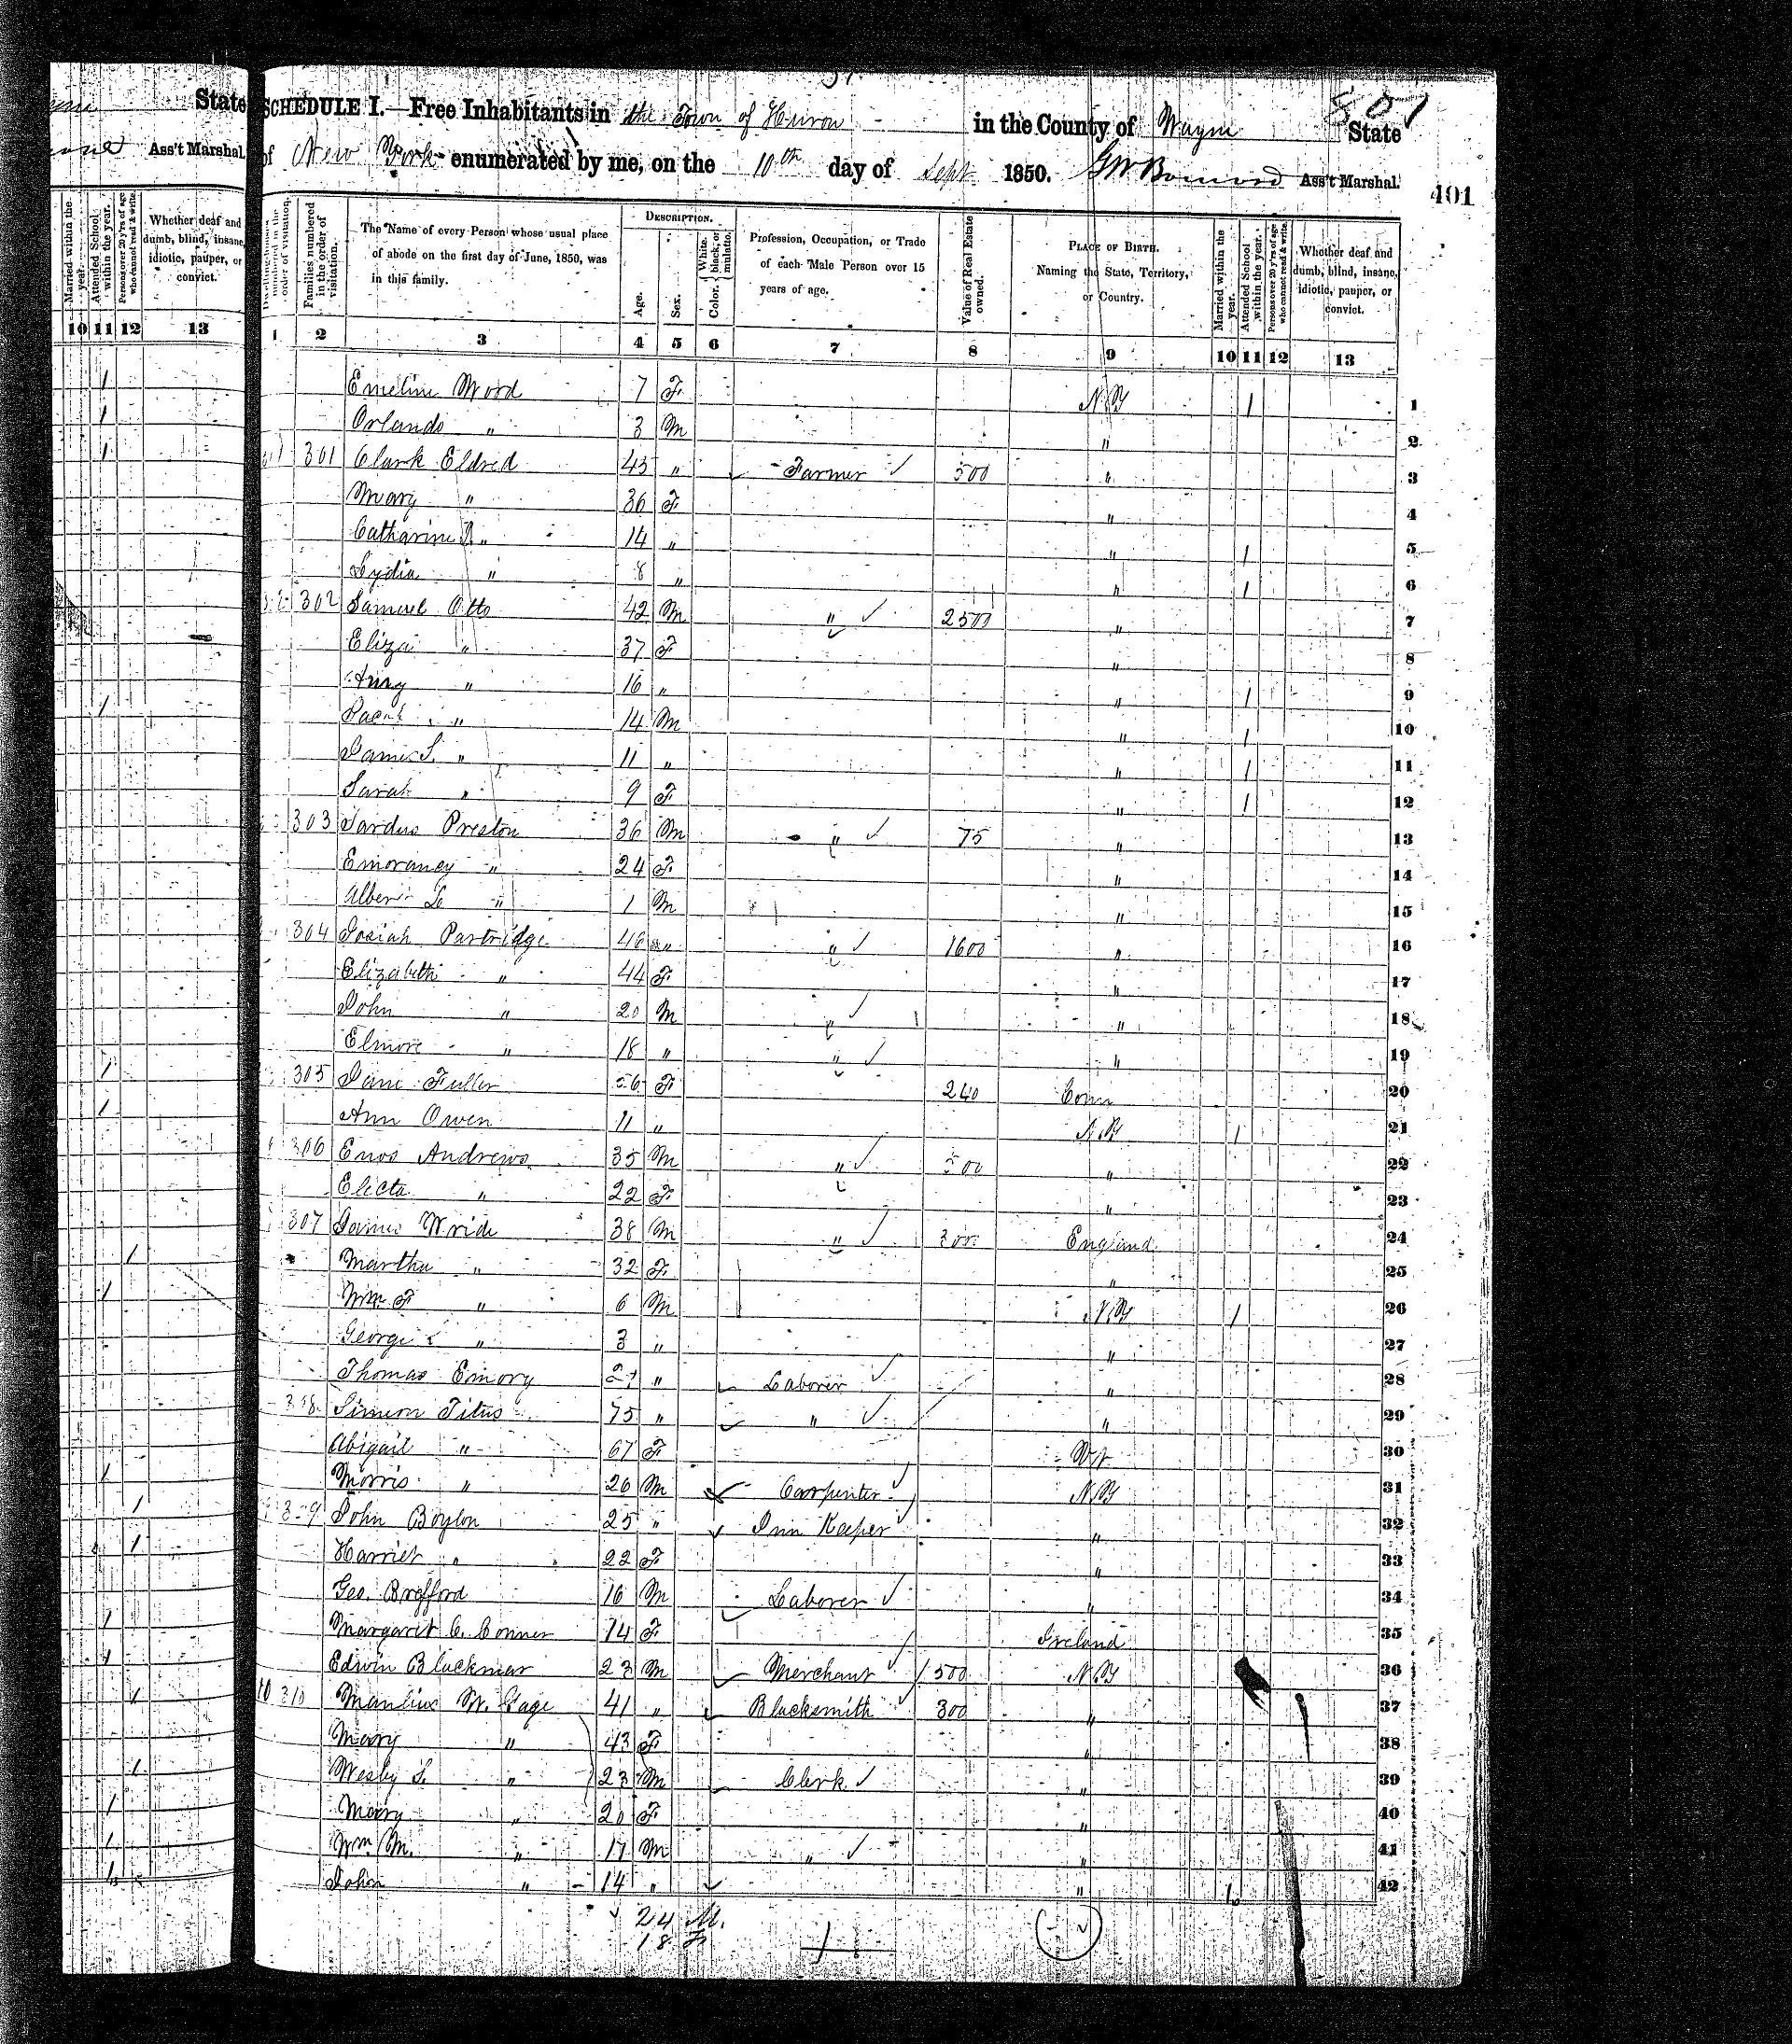 State
Ass't Marshal.
Married within the year.
Attended School within the year.
Persons over 20 y'rs of age who cannot read & write.
Whether deaf and dumb, blind, insane, idiotic, pauper, or convict.
10 11 12 13
SCHEDULE I.—Free Inhabitants in the Town of Huron in the County of Wayne State
of New York enumerated by me, on the 10th day of Sept 1850. Ass't Marshal.
401
Families numbered in the order of visitation.
The Name of every Person whose usual place of abode on the first day of June, 1850, was in this family.
DESCRIPTION.
Age.
Sex.
Color, White, black, or mulatto.
Profession, Occupation, or Trade of each Male Person over 15 years of age.
Value of Real Estate owned.
PLACE OF BIRTH. Naming the State, Territory, or Country.
Married within the year.
Attended School within the year.
Persons over 20 y'rs of age who cannot read & write.
Whether deaf and dumb, blind, insane, idiotic, pauper, or convict.
1 2 3 4 5 6 7 8 9 10 11 12 13
Emeline Wood 7 F N.Y 1 1
Orlando " 3 M " 2
301 Clark Eldred 43 " Farmer 500 " 3
Mary " 36 F " 4
Catharine " 14 " " 1 5
Lydia " 8 " " 1 6
302 Samuel Otto 42 M " 2500 " 7
Eliza " 37 F " 8
Amy " 16 " " 1 9
" 14 M " 1 10
James S. " 11 " " 1 11
Sarah " 9 F " 1 12
303 Sardus Preston 36 M " 75 " 13
Emoraney " 24 F " 14
Albert " 1 M " 15
304 Josiah Partridge 46 " " 1600 " 16
Elizabeth " 44 F " 17
John " 20 M " " 18
Elmore " 18 " " " 19
305 Jane Fuller 56 F 240 Conn 20
Ann Owen 11 " N.Y 1 21
306 Enos Andrews 35 M " 500 " 22
Electa " 22 F " 23
307 James Wride 38 M " England 24
Martha " 32 F " 25
Wm F " 6 M N.Y 1 26
George " 3 " " 27
Thomas Emory " Laborer " 28
Simeon Titus 75 " " " 29
Abigail " 67 F 30
Morris " 26 M Carpenter N.Y 31
John Boylon 25 " Inn Keeper " 32
Harriet " 22 F " 33
Geo. Brofford 16 M Laborer " 34
Margaret C. Conner 14 F Ireland 35
Edwin Blackmar 23 M Merchant 1500 N.Y 36
310 Manlius W. Gage 41 " Blacksmith 300 " 37
Mary " 43 F " 38
Wesley " 23 M Clerk " 39
Mary " 20 F " 40
Wm M. " 17 M " " 41
John " 14 " " 42
24 M.
18 F